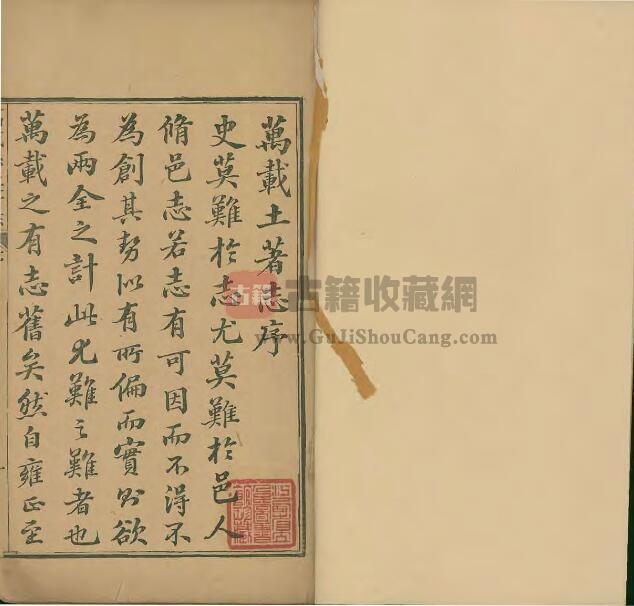 萬載土著志序
史莫難於志尤莫難於邑人
脩邑志若志有可因而不得不
為創其勢似有所偏而實則欲
為兩全之計此尤難之難者也
萬載之有志舊矣然自雍正至
古籍
古籍收藏網
www.GuJiShouCang.com